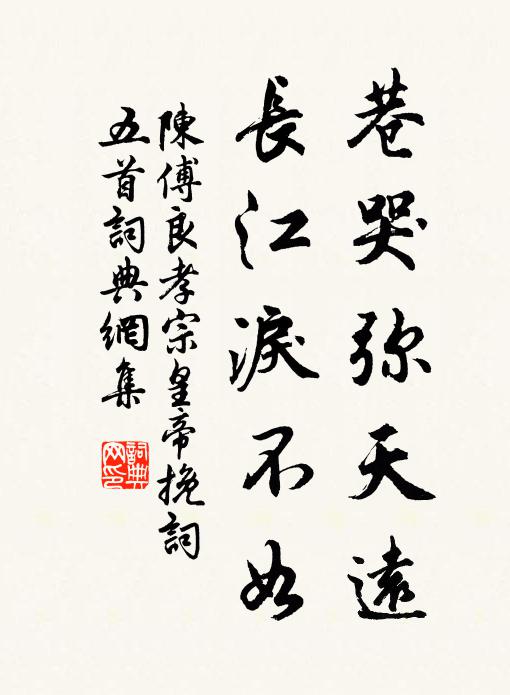 巷哭弥天遠
長江淚不如
陳傅良孝宗皇帝挽詞
五首詞典網集
詞典
网印